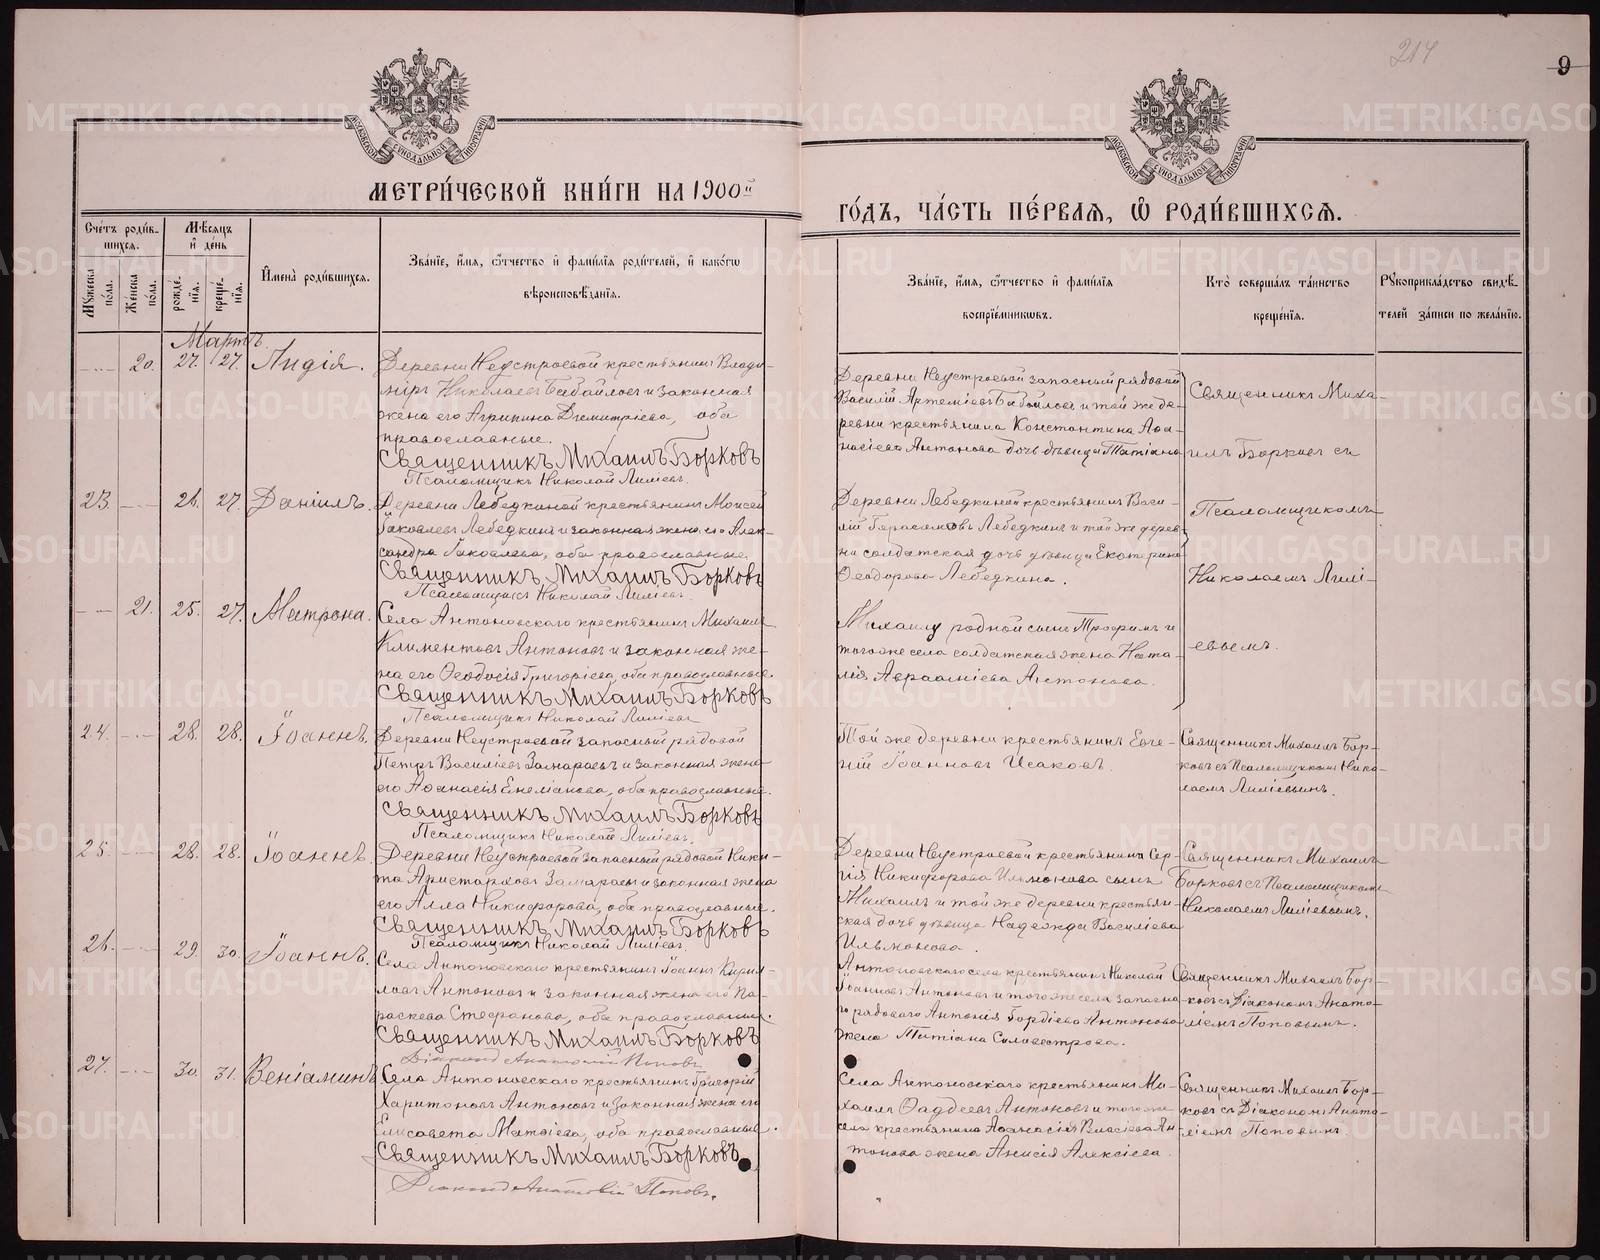 214
9
МОСКОВСКОЙ СѴНОДАЛЬНОЙ ТИПОГРАФІИ
МОСКОВСКОЙ СѴНОДАЛЬНОЙ ТИПОГРАФІИ
МЕТРИ́ЧЕСКОЙ КНИ́ГИ НА 1900й
ГО́ДЪ, ЧА́СТЬ ПЕ́РВАѦ, Ѡ҆ РОДИ́ВШИХСѦ.
Сче́тъ роди́в-
шихсѧ.
Мꙋ́жеска по́ла.
Же́нска по́ла.
Мѣ́сѧцъ
и҆ де́нь
рожде́-
нїѧ.
креще́-
нїѧ.
И҆мена̀ роди́вшихсѧ.
Зва́нїе, и҆́мѧ, ѻ҆́тчество и҆ фами́лїѧ роди́телей, и҆ како́гѡ
вѣроисповѣ́данїѧ.
Зва́нїе, и҆́мѧ, ѻ҆́тчество и҆ фами́лїѧ
воспрїе́мникѡвъ.
Кто̀ соверша́лъ та́инство
креще́нїѧ.
Рꙋкоприкла́дство свидѣ́-
телей за́писи по жела́нїю.
Мартъ.
20. 27. 27. Лидія.
Деревни Неустроевой крестьянинъ Влади-
міръ Николаевъ Бабайловъ и законная
жена его Агрипина Димитріева, оба
православные.
Священникъ Михаилъ Борковъ
Псаломщикъ Николай Лиліевъ.
Деревни Неустроевой запасный рядовой
Василій Артеміевъ Бабайловъ и той же де-
ревни крестьянина Константина Аѳа-
насіева Антонова дочь дѣвица Татіана
Священникъ Миха-
илъ Борковъ съ
23. 26. 27. Даніилъ.
Деревни Лебедкиной крестьянинъ Моисей
Іаковлевъ Лебедкинъ и законная жена его Алек-
сандра Іаковлева, оба православные.
Священникъ Михаилъ Борковъ
Псаломщикъ Николай Лиліевъ.
Деревни Лебедкиной крестьянинъ Васи-
лій Герасимовъ Лебедкинъ и той же дерев-
ни солдатская дочь дѣвица Екатерина
Ѳеодорова Лебедкина.
Псаломщикомъ
Николаемъ Лилі-
21. 25. 27. Матрона.
Села Антоновскаго крестьянинъ Михаилъ
Климентовъ Антоновъ и законная же-
на его Ѳеодосія Григоріева, оба православные.
Священникъ Михаилъ Борковъ
Псаломщикъ Николай Лиліевъ
Михаилу родной сынъ Трофимъ и
того же села солдатская жена Ната-
лія Авраамiева Антонова.
евымъ.
24. 28. 28. Іоаннъ.
Деревни Неустроевой запасный рядовой
Петръ Василіевъ Замараевъ и законная жена
его Аѳанасія Емеліанова, оба православные.
Священникъ Михаилъ Борковъ
Псаломщикъ Николай Лиліевъ.
Той же деревни крестьянинъ Евге-
ній Іоанновъ Исаковъ.
Священникъ Михаилъ Бор-
ковъ съ Псаломщикомъ Нико-
лаемъ Лиліевымъ.
25. 28. 28. Іоаннъ.
Деревни Неустроевой запасный рядовой Ники-
та Аристарховъ Замараевъ и законная жена
его Алла Никифорова, оба православные.
Священникъ Михаилъ Борковъ
Псаломщикъ Николай Лиліевъ.
Деревни Неустроевой крестьянина Сер-
гія Никифорова Ильмонова сынъ
Михаилъ и той же деревни крестьян-
ская дочь дѣвица Надежда Василіева
Ильмонова.
Священникъ Михаилъ
Борковъ съ Псаломщикомъ
Николаемъ Лиліевымъ.
26. 29. 30. Іоаннъ.
Села Антоновскаго крестьянинъ Іоаннъ Кирил-
ловъ Антоновъ и законная жена его Па-
раскева Стефанова, оба православные.
Священникъ Михаилъ Борковъ
Діаконъ Анатолій Поповъ
Антоновскаго села крестьянинъ Николай
Іоанновъ Антоновъ и того же села запасна-
го рядоваго Антонія Гордіева Антонова
жена Татіана Силовестрова.
Священникъ Михаилъ Бор-
ковъ съ Діакономъ Анато-
ліемъ Поповымъ.
27. 30. 31. Веніаминъ
Села Антоновскаго крестьянинъ Григорій
Харитоновъ Антоновъ и законная жена его
Елисавета Матѳіева, оба православные.
Священникъ Михаилъ Борковъ
Діаконъ Анатолій Поповъ.
Села Антоновскаго крестьянинъ Ми-
хаилъ Ѳаддеевъ Антоновъ и того же
села крестьянина Аѳанасія Власіева Ан-
тонова жена Анисія Алексіева.
Священникъ Михаилъ Бор-
ковъ съ Діакономъ Анато-
ліемъ Поповымъ
METRIKI.GASO-URAL.RU